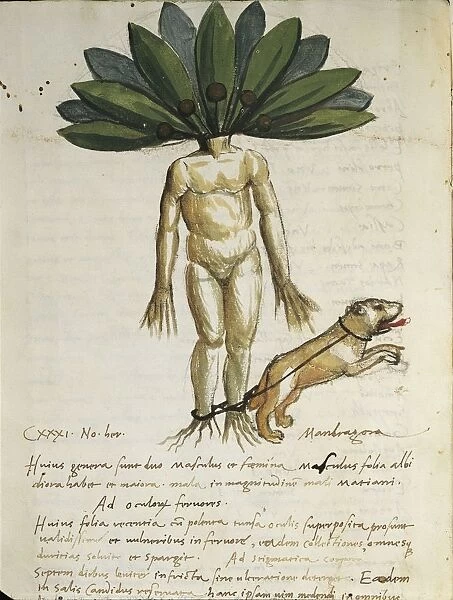 CXXXI. No. her. Mandragora
Huius genera sunt duo Masculus et fœmina Masculus folia albi
diora habet et maiora. mala in magnitudine mali Matiani.
Ad oculorum fervores.
Huius folia recentia cũ polenta tunsa oculis superposita
validissime et vulneribus in fervore, eadem collectiones omnesq
duritias solvit et spargit. Ad stigmatica corpora
Septem diebus leviter infricata sine ulceratione deterget. Eadem
in hanc ipsam vim medendi in omnibus